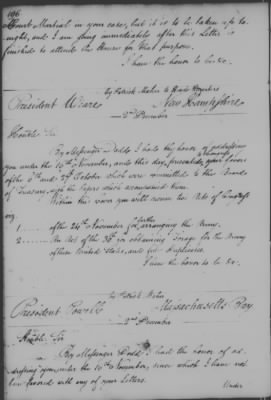 196
Court Martial in your case, but it is to be taken up to
night, and I am going immediately after this Letter is
finished to attend the House for that purpose.
I have the honor to be &c.
by Patrick Maher to Heads Quarters
President Weare New Hampshire
2d December
Honble Sir
By Messenger Dodd, I had the honor of addressing
you under the 10th November, and this day presented your favors
of the and 27 October which were committed to the Board
of Treasury with the Papers which accompanied them.
Within the cover you will receive two Acts of Congress
viz.
1 of the 24th November for arranging the Army.
2 An Act of the for obtaining Forage for the Army
of these United States, and its duplicate
I have the honor to be &c.
by Patrick Maher
President Powell Massachusetts Bay
2d December
Honble Sir
By Messenger Dodd I had the honor of ad-
dressing you under the 10th November, since which I have not
been favored with any of your Letters.
Under